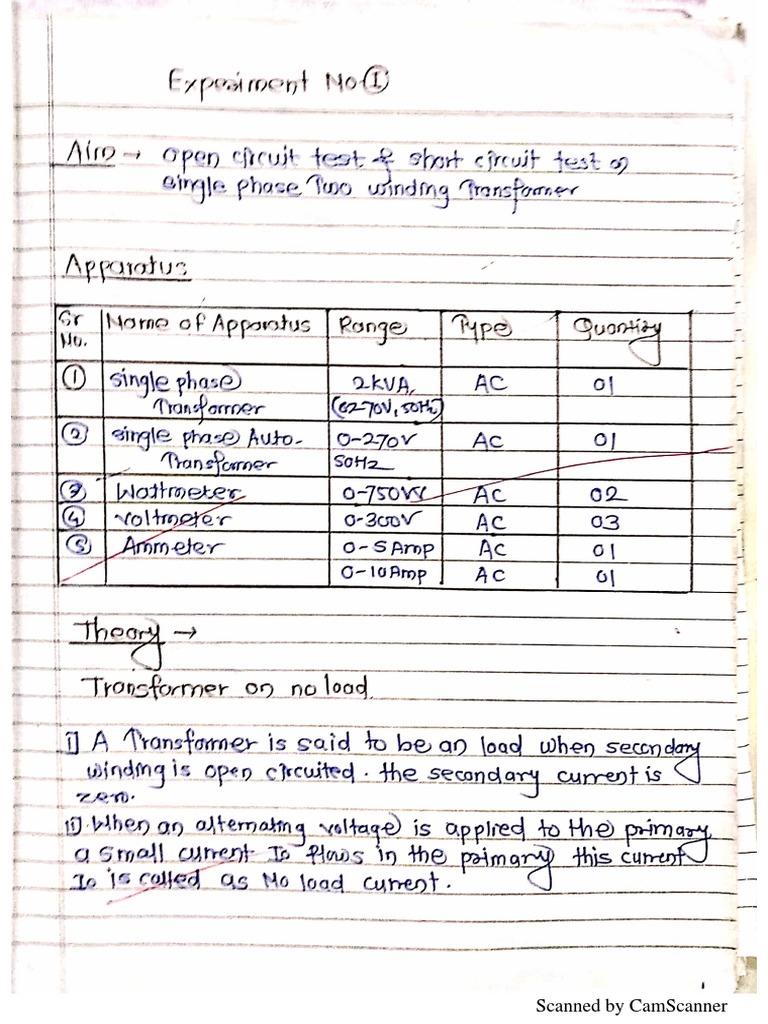 Experiment No ①
Aim → open circuit test & short circuit test on
single phase Two winding Transformer
Apparatus
Sr No. Name of Apparatus Range Type Quantity
① single phase Transformer 2KVA, (02-70V, 50Hz) AC 01
② single phase Auto-Transformer 0-270V 50Hz AC 01
③ Wattmeter 0-750W AC 02
④ Voltmeter 0-300V AC 03
⑤ Ammeter 0-5Amp AC 01
0-10Amp AC 01
Theory →
Transformer on no load
i] A Transformer is said to be an load when secondary
winding is open circuited. the secondary current is
zero.
ii] When an alternating voltage is applied to the primary
a small current Io flows in the primary this current
Io is called as No load current.
Scanned by CamScanner